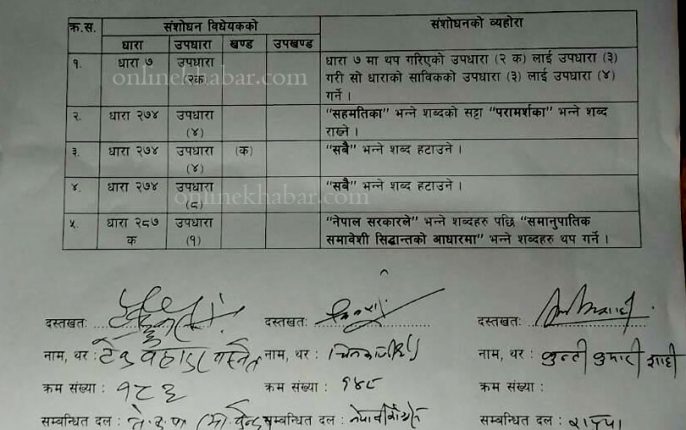 क्र.स. संशोधन विधेयकको संशोधनको व्यहोरा
धारा उपधारा खण्ड उपखण्ड
१. धारा ७ उपधारा २क धारा ७ मा थप गरिएको उपधारा (२ क) लाई उपधारा (३)
गरी सो धाराको साविकको उपधारा (३) लाई उपधारा (४)
गर्ने ।
onlinekhabar.com
२. धारा २७४ उपधारा (४) "सहमतिका" भन्ने शब्दको सट्टा "परामर्शका" भन्ने शब्द
राख्ने ।
३. धारा २७४ उपधारा (४) (क) "सबै" भन्ने शब्द हटाउने ।
४. धारा २७४ उपधारा (८) "सबै" भन्ने शब्द हटाउने ।
onlinekhabar.com
५. धारा २८७ क उपधारा (१) "नेपाल सरकारले" भन्ने शब्दहरु पछि "समानुपातिक
समावेशी सिद्धान्तको आधारमा" भन्ने शब्दहरु थप गर्ने ।
दस्तखतः दस्तखतः दस्तखतः
नाम, थर : टेक बहादुर बस्नेत नाम, थर : नाम, थर : कुन्ती कुमारी शाही
क्रम संख्या : १८६ क्रम संख्या : १४८ क्रम संख्या :
सम्बन्धित दल : सम्बन्धित दल : सम्बन्धित दल : राप्रपा